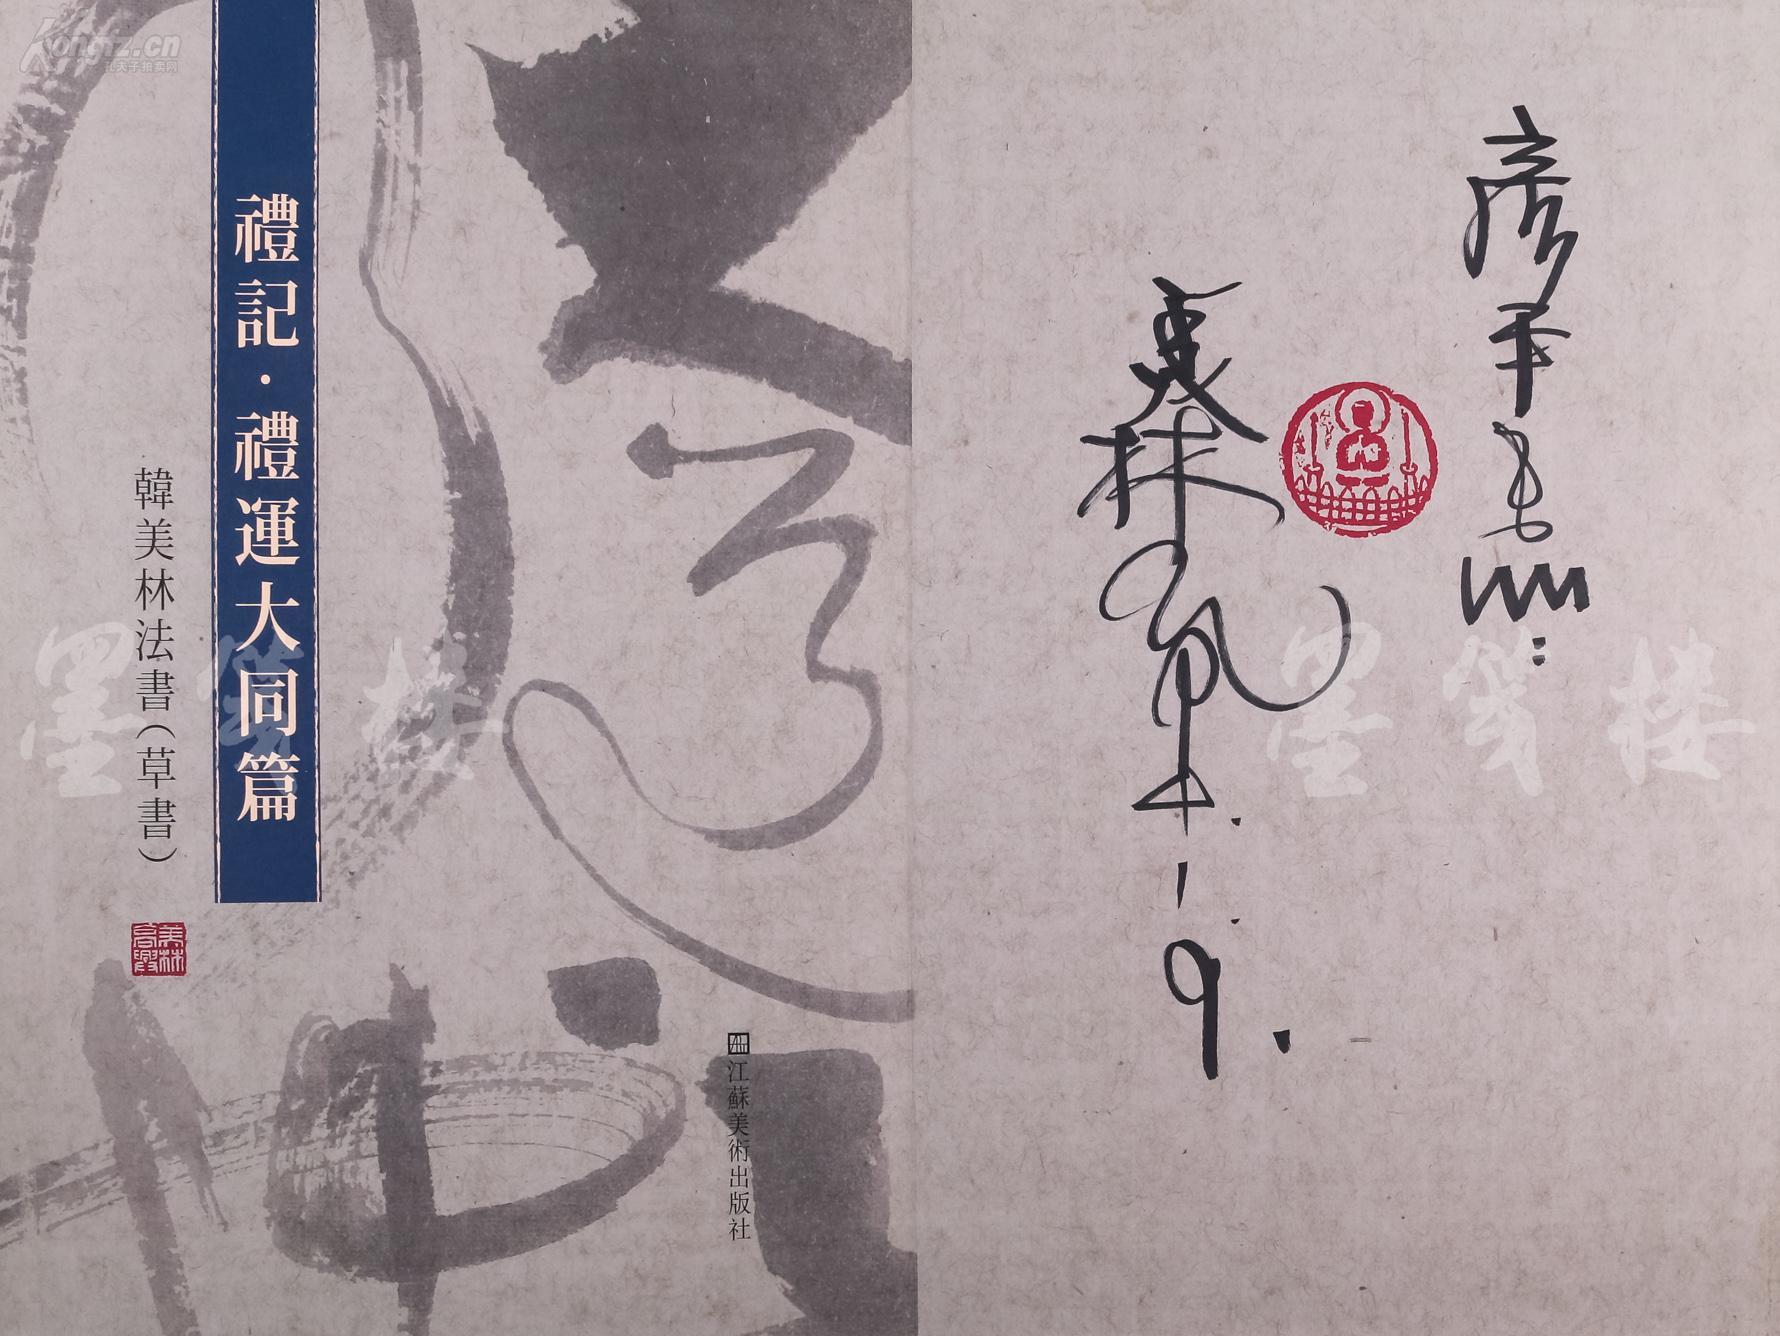 Kongfz.cn
孔夫子拍卖网
禮記·禮運大同篇
韓美林法書(草書)
江蘇美術出版社
彦平
美林
4.
1.
9.
墨笺楼
墨笺楼